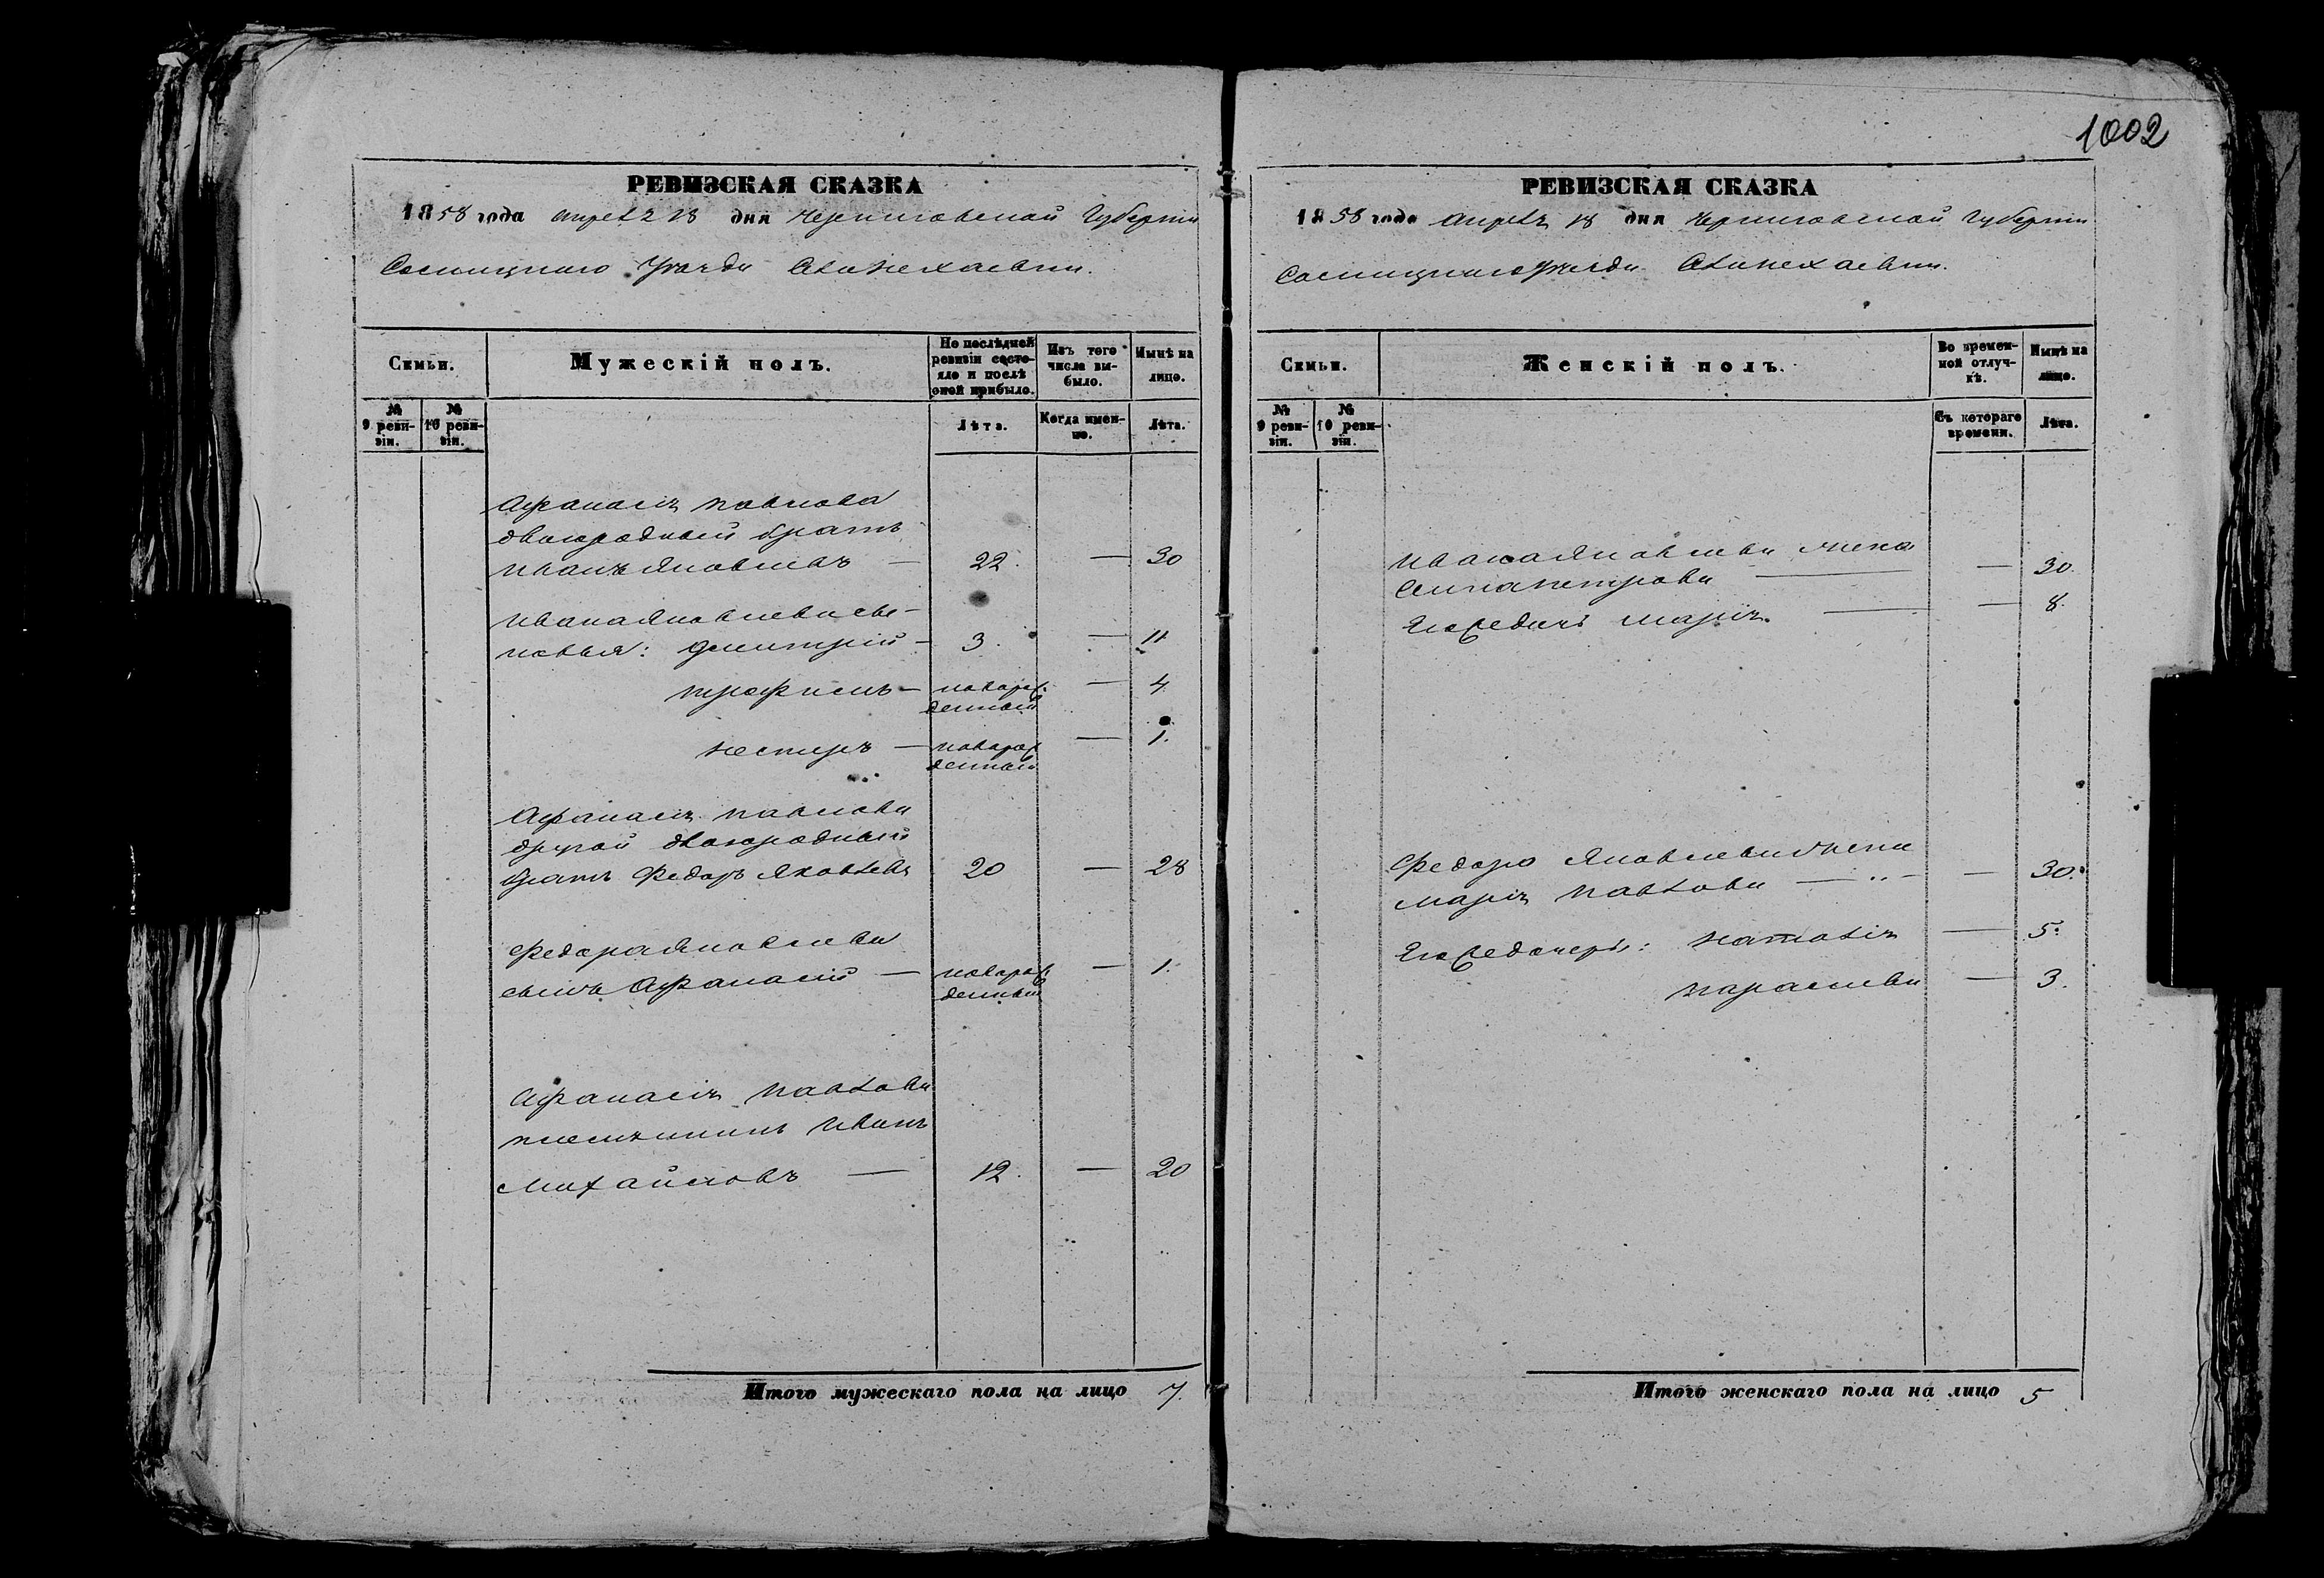 РЕВИЗСКАЯ СКАЗКА
1858 года апреля 18 дня Черниговской Губерніи
Сосницкаго Уезда
Семьи.
Мужескій полъ.
По послѣдней ревизіи состояло и послѣ оной прибыло.
Изъ того числа выбыло.
Нынѣ на лицо.
№ 9 ревизіи.
№ 10 ревизіи.
Лѣта.
Когда именно.
Лѣта.
Афанасія Павлова
двоюродный братъ
Иванъ Яковлевъ — 22. — 30
Ивана Яковлева сы-
новья: Дмитрій — 3. — 11
Трофимъ — новорожденный — 4
Нестеръ — новорожденный — 1.
Афанасія Павлова
другой двоюродный
братъ Федоръ Яковлевъ 20 — 28
Федора Яковлева
сынъ Афанасій — новорожденный — 1.
Афанасія Павлова
племянникъ Иванъ
Михайловъ — 12. — 20
Итого мужескаго пола на лицо 7.
1002
РЕВИЗСКАЯ СКАЗКА
1858 года апреля 18 дня Черниговской Губерніи
Сосницкаго Уезда
Семьи.
Женскій полъ.
Во временной отлучкѣ.
Нынѣ на лицо.
№ 9 ревизіи.
№ 10 ревизіи.
Съ котораго времени.
Лѣта.
Ивана Яковлева жена
Петрова — — 30.
Марія — — 8.
Федора Яковлева жена
Марія Павлова — — 30.
Его дочери: Наталія — 5.
Параскева — 3.
Итого женскаго пола на лицо 5